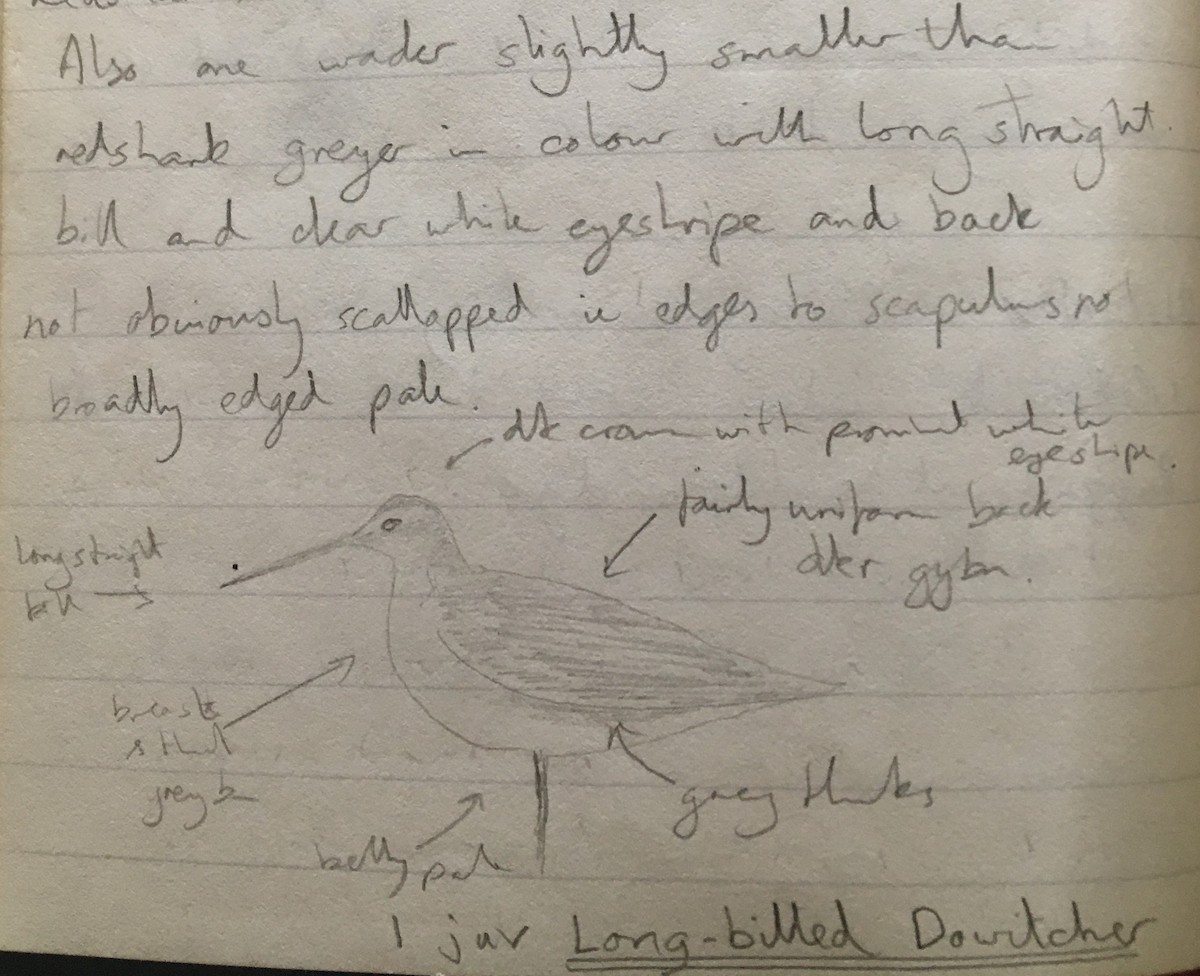 Also one wader slightly smaller tha
redshank greyer in colour with long straight.
bill and clear white eyestripe and back
not obviously scallopped ie edges to scapulars no
broadly edged pale.
dk crown with promint white
eyestripe.
fairly uniform back
dker gybn.
long straight
bill
breast &
throat
grey bn
grey
belly pale
1 juv Long-billed Dowitcher